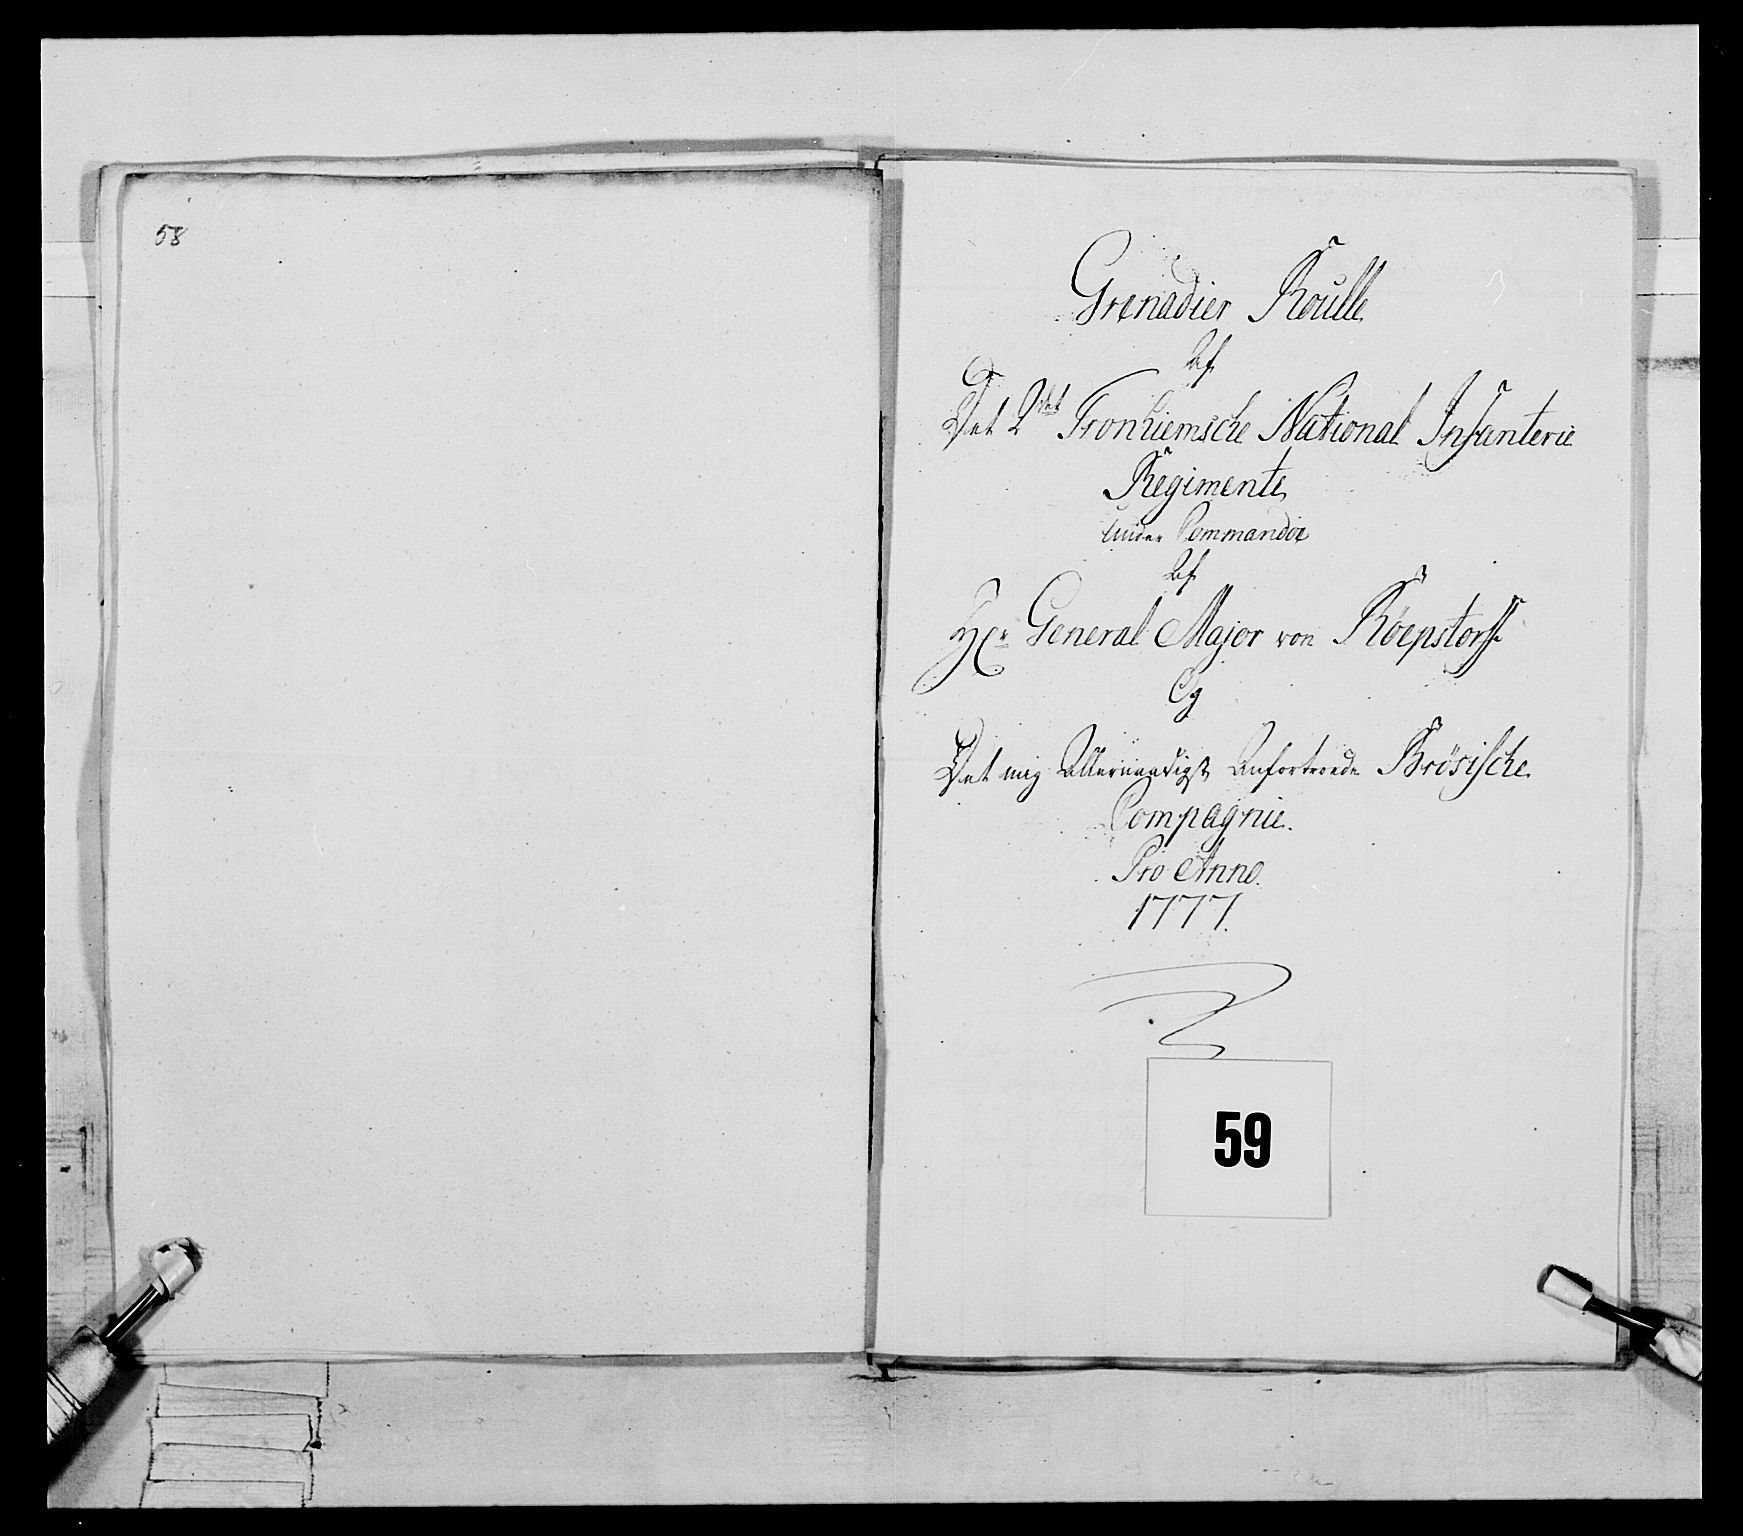 58
Grenadier Roulle
Af
Det 2det Tronhiemsche National Infanterie
Regimente
under Commando
Af
Hr General Major von Röepstorff
Og
Det mig Allernaadigst Anfortroede Brösische
Compagnie.
Pro Anno
1777.
59